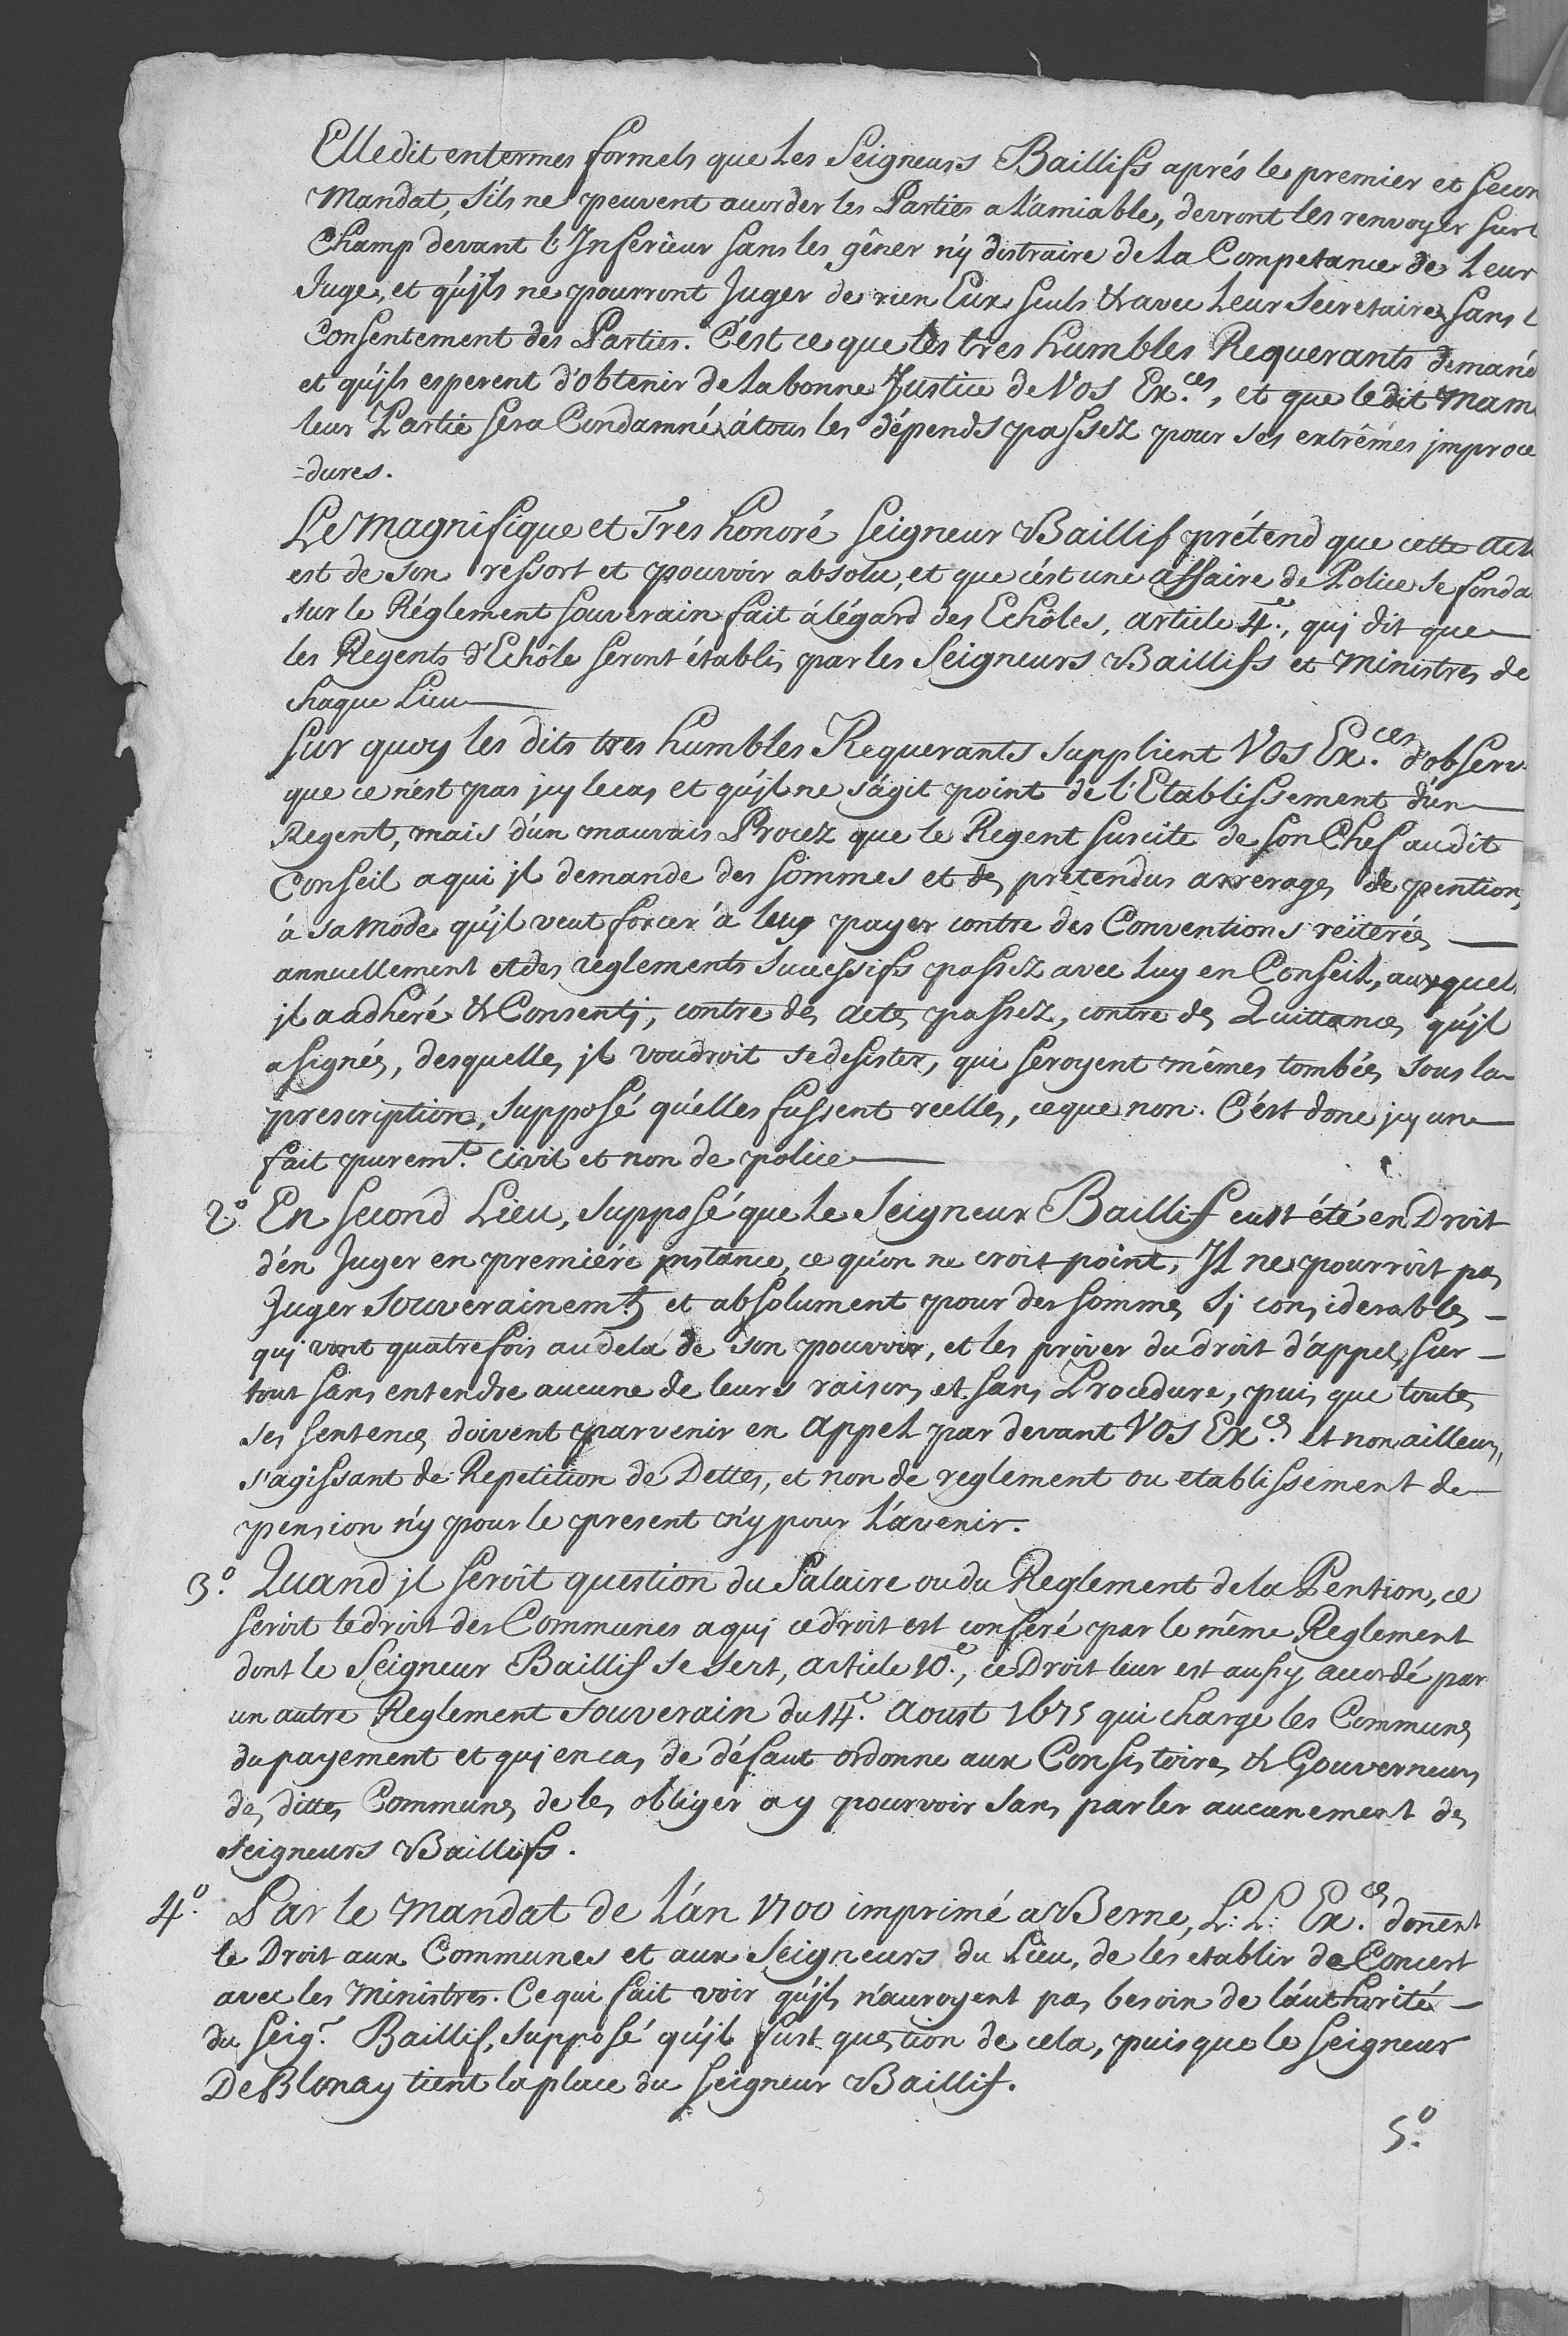 Elle dit en termes formels que les Seigneurs Baillifs aprés le premier et secon
Mandat, s'ils ne peuvent accorder les Parties a l'amiable, devront les renvoyer sur l
Champ devant l'Inferieur sans les gêner n'y distraire de la Competance de Leur
Juge, et qu'jls ne pourront Juger de rien Eux seuls & avec Leur Secretaire sans l
Consentement des Parties. C'est ce que les tres humbles Requerants demand
et qu'jls esperent d'obtenir de la bonne Justice de Vos Ex.ces, et que le dit Mam
leur Partie sera Condamné à tous les dépends passez pour ses extrêmes jmproce
=dures.
Le Magnifique et Tres honoré Seigneur Baillif prétend que cette act
est de son ressort et pouvoir absolu, et que c'est une affaire de Police se fonda
sur le Réglement souverain fait à légard des Echôles, article 4.e, quj dit que
les Regents d'Echôle seront établis par les Seigneurs Baillifs et Ministres de
chaque Lieu
Sur quoy les dits tres humbles Requerants supplient Vos Ex.ces d'observ
que ce n'est pas jcy le cas et qu'jl ne s'agit point de l'Etablissement d'un
Regent, mais d'un mauvais Procez que le Regent suscite de son Chef au dit
Conseil a qui jl demande des sommes et des prétendus arrerages de pention,
à sa mode qu'jl veut forcer à luy payer contre des Conventions reïterées
annuellement et des reglements successifs passez avec luy en Conseil, auxquel
jl a adhéré & Consentj, contre des actes passez, contre des Quittances qu'jl
a signés, desquelles jl voudroit se desister, qui seroyent mêmes tombées sous la
prescription, supposé qu'elles fussent reelles, ce que non. C'est donc jcy un
fait purem.t civil et non de police
2.o En second Lieu, supposé que le Seigneur Baillif eust été en Droit
d'en Juger en premiére jnstance, ce qu'on ne croit point, Jl ne pourroit pas
Juger souverainem.t et absolument pour des sommes sj considerables
quj vont quatre fois au delà de son pouvoir, et les priver du droit d'appel, sur
tout sans entendre aucune de leurs raisons et sans Procedure, puis que toutes
ses sentences doivent parvenir en appel par devant Vos Ex.ces et non ailleurs,
s'agissant de Repetition de Dettes, et non de reglement ou etablissement de
pension n'y pour le present n'y pour l'avenir.
3.o Quand jl seroit question du Salaire ou du Reglement de la Pention, ce
seroit le droit des Communes a quj ce droit est conferé par le même Reglement
dont le Seigneur Baillif se sert, article 10.e, ce Droit leur est aussy accordé par
un autre Reglement souverain du 14.e Aoust 1675 qui charge les Communes
du payement et quj en cas de défaut ordonne aux Consistoires & Gouverneurs
des dittes Communes de les obliger a y pourvoir sans parler aucunement des
Seigneurs Baillifs.
4.o Par le Mandat de l'an 1700 imprimé a Berne, L: L: Ex.ces donent
le Droit aux Communes et aux Seigneurs du Lieu, de les etablir de Concert
avec les Ministres. Ce qui fait voir qu'jls n'auroyent pas besoin de l'authorité
du Seig.r Baillif, supposé qu'jl fust question de cela, puis que le Seigneur
De Blonay tient la place du Seigneur Baillif.
5.o